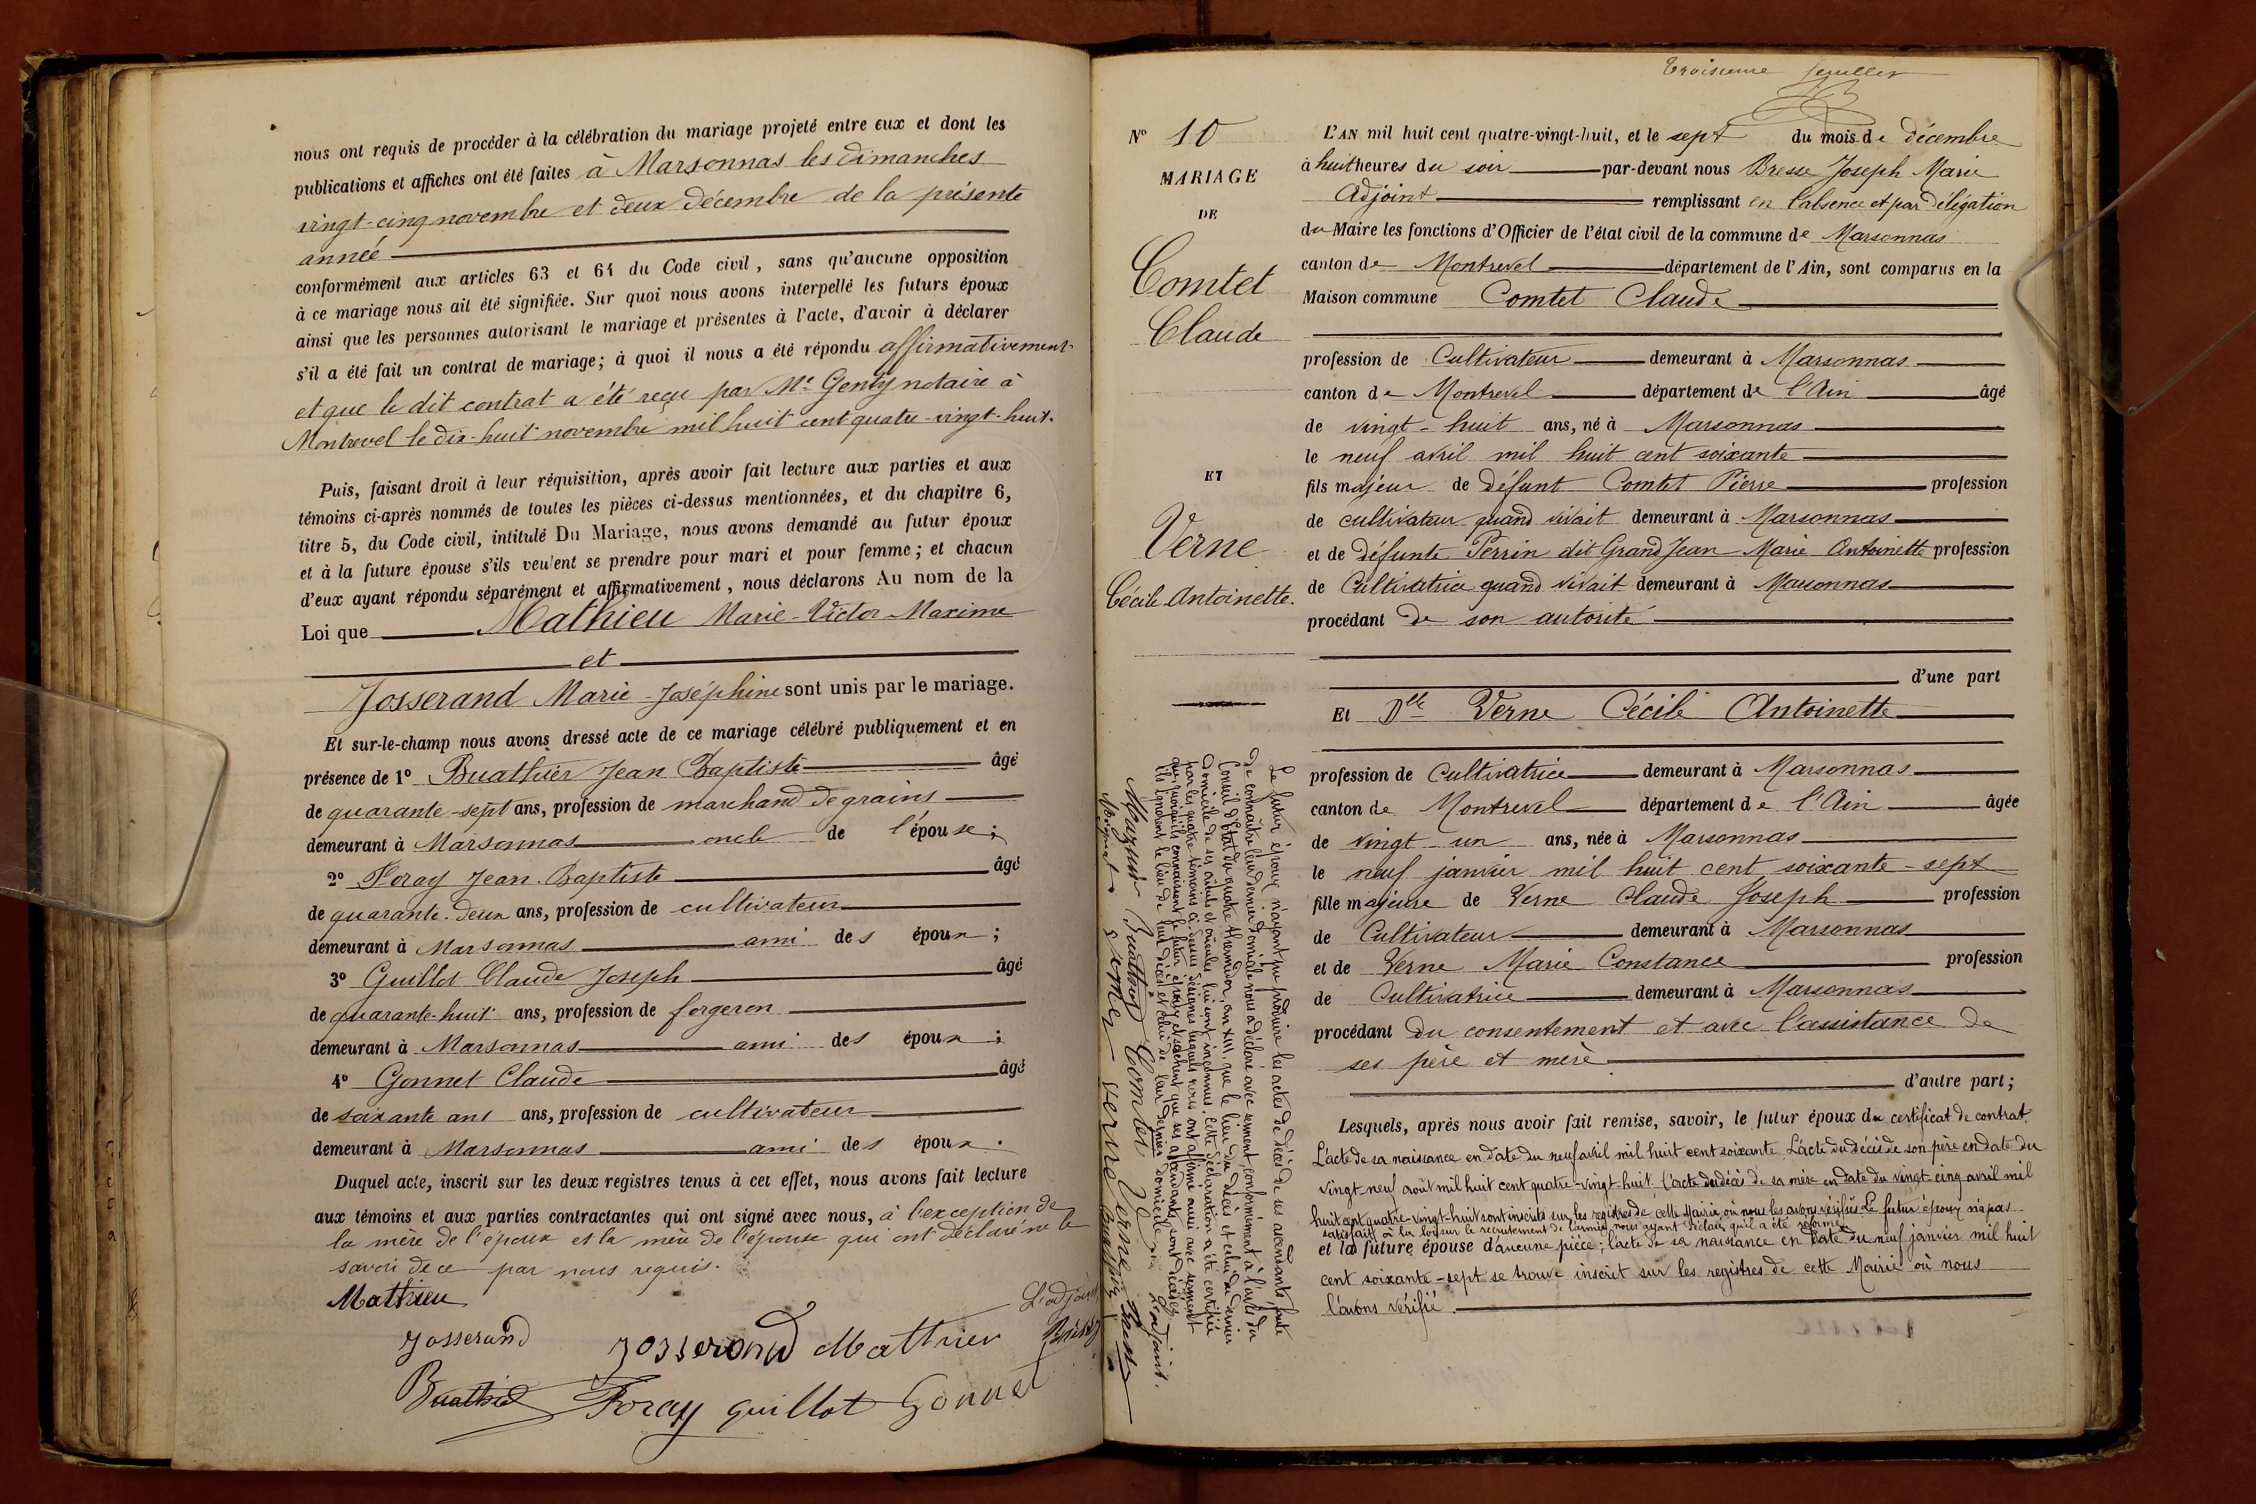 nous ont requis de procéder à la célébration du mariage projeté entre eux et dont les
publications et affiches ont été faites à Marsonnas les dimanches
vingt-cinq novembre et deux décembre de la présente
année
conformément aux articles 63 et 64 du Code civil, sans qu'aucune opposition
à ce mariage nous ait été signifiée. Sur quoi nous avons interpellé les futurs époux
ainsi que les personnes autorisant le mariage et présentes à l'acte, d'avoir à déclarer
s'il a été fait un contrat de mariage; à quoi il nous a été répondu affirmativement
et que le dit contrat a été reçu par Me Genty notaire à
Montrevel le dix-huit novembre mil huit cent quatre-vingt-huit.
Puis, faisant droit à leur réquisition, après avoir fait lecture aux parties et aux
témoins ci-après nommés de toutes les pièces ci-dessus mentionnées, et du chapitre 6,
titre 5, du Code civil, intitulé Du Mariage, nous avons demandé au futur époux
et à la future épouse s'ils veulent se prendre pour mari et pour femme; et chacun
d'eux ayant répondu séparément et affirmativement, nous déclarons Au nom de la
Loi que Mathieu Marie-Victor-Maxime
et
Josserand Marie-Joséphine sont unis par le mariage.
Et sur-le-champ nous avons dressé acte de ce mariage célébré publiquement et en
présence de 1º Buathier Jean Baptiste âgé
de quarante-sept ans, profession de marchand de grains
demeurant à Marsonnas oncle de l'épouse;
2º Foray Jean-Baptiste âgé
de quarante-deux ans, profession de cultivateur
demeurant à Marsonnas ami des époux;
3º Guillot Claude Joseph âgé
de quarante-huit ans, profession de forgeron
demeurant à Marsonnas ami des époux;
4º Gonnet Claude âgé
de soixante ans ans, profession de cultivateur
demeurant à Marsonnas ami des époux.
Duquel acte, inscrit sur les deux registres tenus à cet effet, nous avons fait lecture
aux témoins et aux parties contractantes qui ont signé avec nous, à l'exception de
la mère de l'époux et la mère de l'épouse qui ont déclaré ne le
savoir de ce par nous requis.
Mathieu L'adjoint
Josserand Josserand Mathieu Bresse
Buathier Foray guillot Gonnet
Troisième feuillet
Nº 10
MARIAGE
DE
Comtet
Claude
ET
Verne
Cécile Antoinette.
L'AN mil huit cent quatre-vingt-huit, et le sept du mois de décembre
à huit heures du soir par-devant nous Bresse Joseph Marie
Adjoint remplissant en l'absence et par délégation
du Maire les fonctions d'Officier de l'état civil de la commune de Marsonnas
canton de Montrevel département de l'Ain, sont comparus en la
Maison commune Comtet Claude
profession de Cultivateur demeurant à Marsonnas
canton de Montrevel département de l'Ain âgé
de vingt-huit ans, né à Marsonnas
le neuf avril mil huit cent soixante
fils majeur de défunt Comtet Pierre profession
de cultivateur quand vivait demeurant à Marsonnas
et de défunte Perrin dit Grand Jean Marie Antoinette profession
de Cultivatrice quand vivait demeurant à Marsonnas
procédant de son autorité
d'une part
Et Dlle Verne Cécile Antoinette
profession de Cultivatrice demeurant à Marsonnas
canton de Montrevel département de l'Ain âgée
de vingt un ans, née à Marsonnas
le neuf janvier mil huit cent soixante-sept
fille majeure de Verne Claude Joseph profession
de Cultivateur demeurant à Marsonnas
et de Verne Marie Constance profession
de Cultivatrice demeurant à Marsonnas
procédant du consentement et avec l'assistance de
ses père et mère
d'autre part;
Lesquels, après avoir fait remise, savoir, le futur époux du certificat de contrat.
L'acte de sa naissance en date du neuf avril mil huit cent soixante. L'acte du décès de son père en date du
vingt neuf août mil huit cent quatre-vingt-huit. L'acte du décès de sa mère en date du vingt cinq avril mil
huit cent quatre-vingt-huit sont inscrits sur les registres de cette Mairie, où nous les avons vérifiés. Le futur époux n'a pas
satisfait à la loi sur le recrutement de l'armée, nous ayant déclaré qu'il a été réformé
et la future épouse d'aucune pièce; l'acte de sa naissance en date du neuf janvier mil huit
cent soixante-sept se trouve inscrit sur les registres de cette Mairie où nous
l'avons vérifié.
Le futur époux n'ayant pu produire les actes de décès de ses ascendants, faute
de connaître leur dernier domicile, nous a déclaré avec serment, conformément à l'avis du
Conseil d'Etat du quatre thermidor, an XIII, que le lieu du décès et celui du dernier
domicile de ses aïeuls et aïeules lui sont inconnus; cette déclaration a été certifiée
par les quatre témoins ci-dessus désignés lesquels nous ont affirmé aussi avec serment
que, quoiqu'ils connaissent le futur époux, et sachent que ses ascendants sont décédés,
ils ignorent le lieu de leur décès et celui de leur dernier domicile.
L'adjoint.
Buathier Comtet Verne
verne